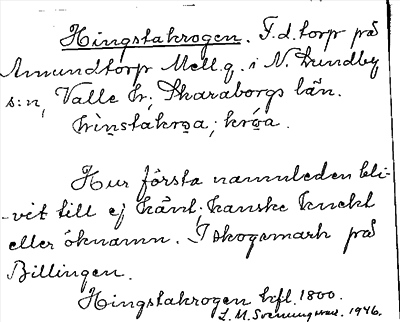 Hingstakrogen. F.d. torp på
Amundtorp Mellg. i N. Lundby
s:n, Valle hr; Skaraborgs län.
hìnstakroa; króa.
Hur första namnleden bli-
-vit till ej känt; kanske knekt
eller öknamn. I skogsmark på
Billingen.
Hingstakrogen hfl. 1800.
L. M. 1946.